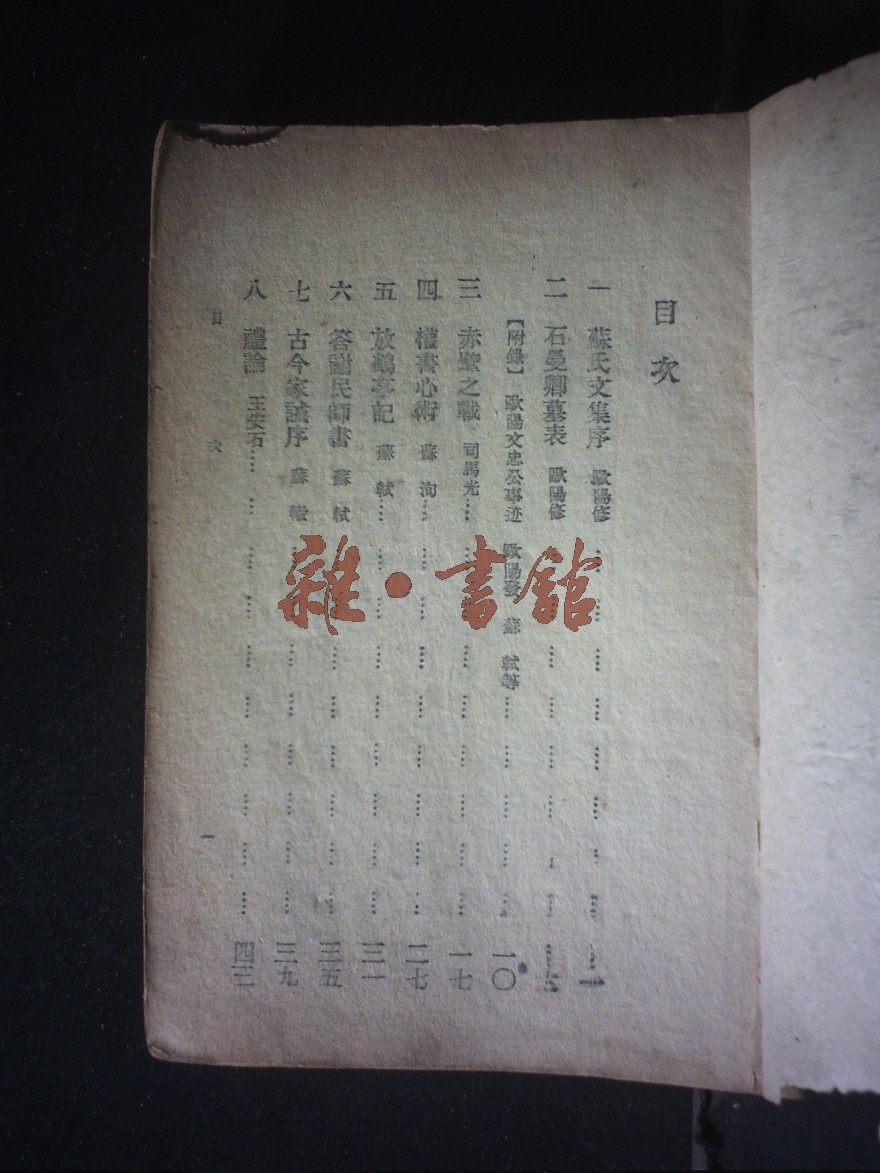 目次
一 蘇氏文集序 歐陽修 一
二 石曼卿墓表 歐陽修
【附錄】 歐陽文忠公事迹 歐陽發 蘇軾等 一〇
三 赤壁之戰 司馬光 一七
四 權書心術 蘇洵 二七
五 放鶴亭記 蘇軾 三一
六 答謝民師書 蘇軾 三五
七 古今家誡序 蘇轍 三九
八 禮論 王安石 四三
目次
一
雜·書館